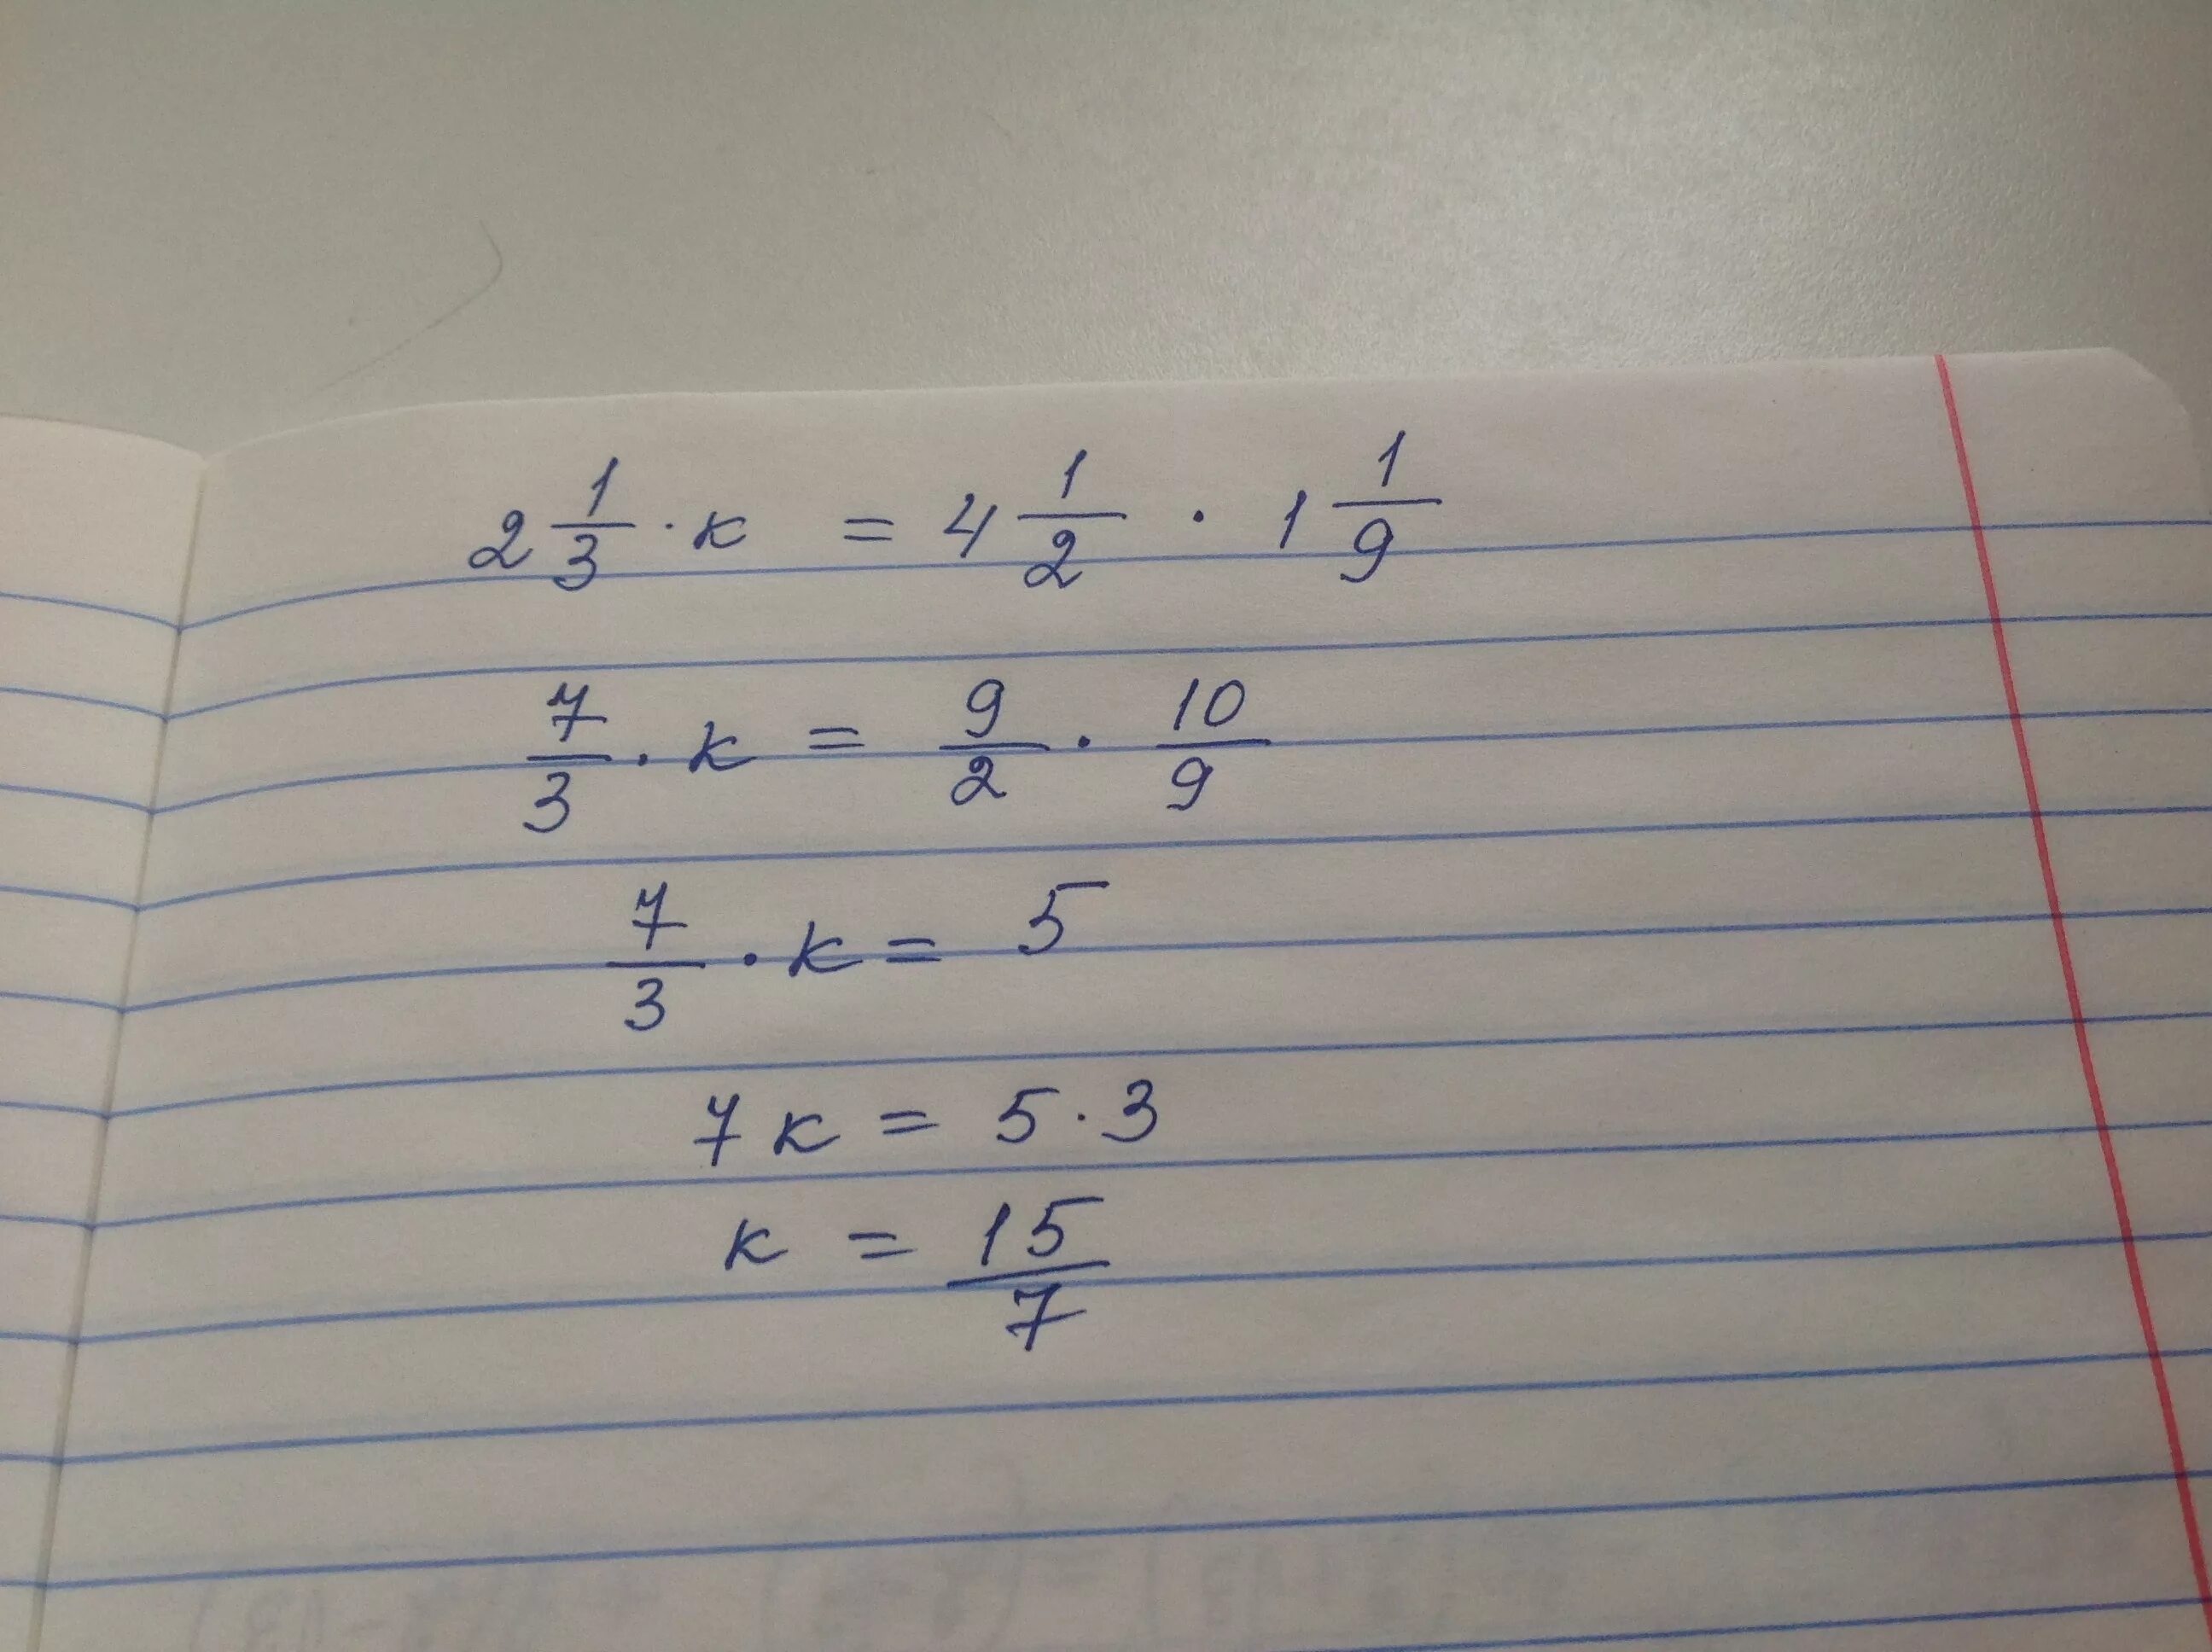 2 1/3 · к = 4 1/2 · 1 1/9
7/3 · к = 9/2 · 10/9
7/3 · к = 5
7к = 5 · 3
к = 15/7